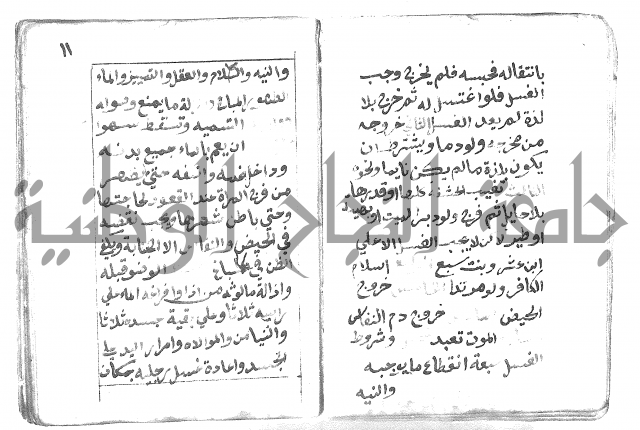 بانتقاله فحبسه فلم يخرج وجب
الغسل فلو اغتسل له ثم خرج بلا
لذة لم يعد الغسل الثاني خروجه
من مخرجه ولو دما ويشترط ان
يكون بلذة ما لم يكن نايما ونحوه
تغييب حشفة كلها او قدرها
بلا حايل في فرج ولو دبر لميت او بهيمة
او طير لا يجب الغسل الا على
ابن عشر وبنت تسع اسلام
الكافر ولو مرتدا خروج
الحيض خروج دم النفاس
الموت تعبد وشروط
الغسل سبعة انقطاع ما يوجبه
والنيه
١١
والنيه والاسلام والعقل والتمييز والماء
الطهور المباح وازالة ما يمنع وصوله
التسميه وتسقط سهوا
ان يعم بالماء جميع بدنه
وداخل فمه وانفه حتى يظهر
من فرج المرة عند القعود لحاجتها
وحتى باطن شعرها ويجب نقضه
في الحيض والنفاس لا الجنابة
الوضو قبله
وازالة ما لوثه من اذا وافراغه الماء على
راسه ثلاثا وعلى بقية جسده ثلاثا
والتيامن والموالاه وامرار اليد على
الجسد واعادة غسل رجليه بمكان
جامعة النجاح الوطنية